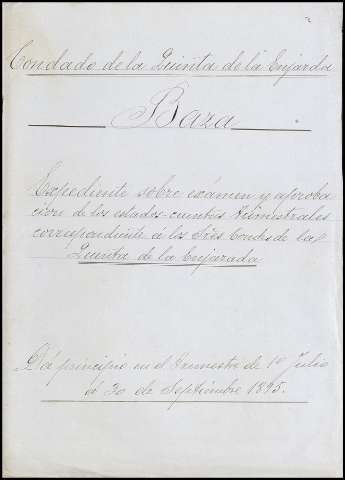 Condado de la Quinta de la Enjarda
Baza
Expediente sobre exámen y aproba
cion de los estados-cuentas trimestrales
correspondiente á los Sres Condes de la
Quinta de la Enjarada
Dá principio en el trimestre de 1º Julio
á 30 de Septiembre 1895.